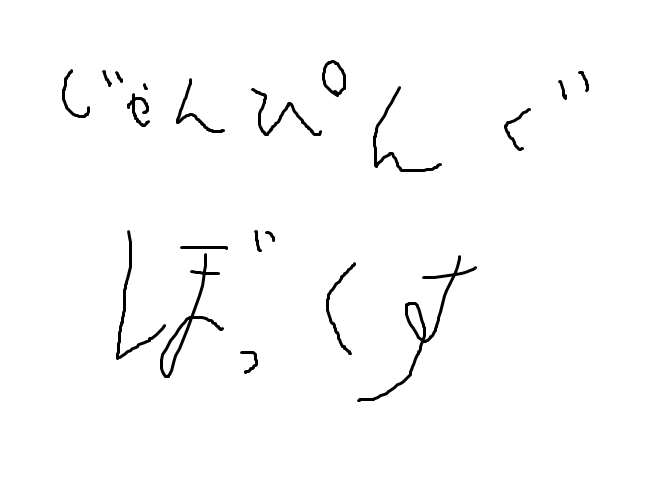 じゃんぴんぐ
ぼっくす